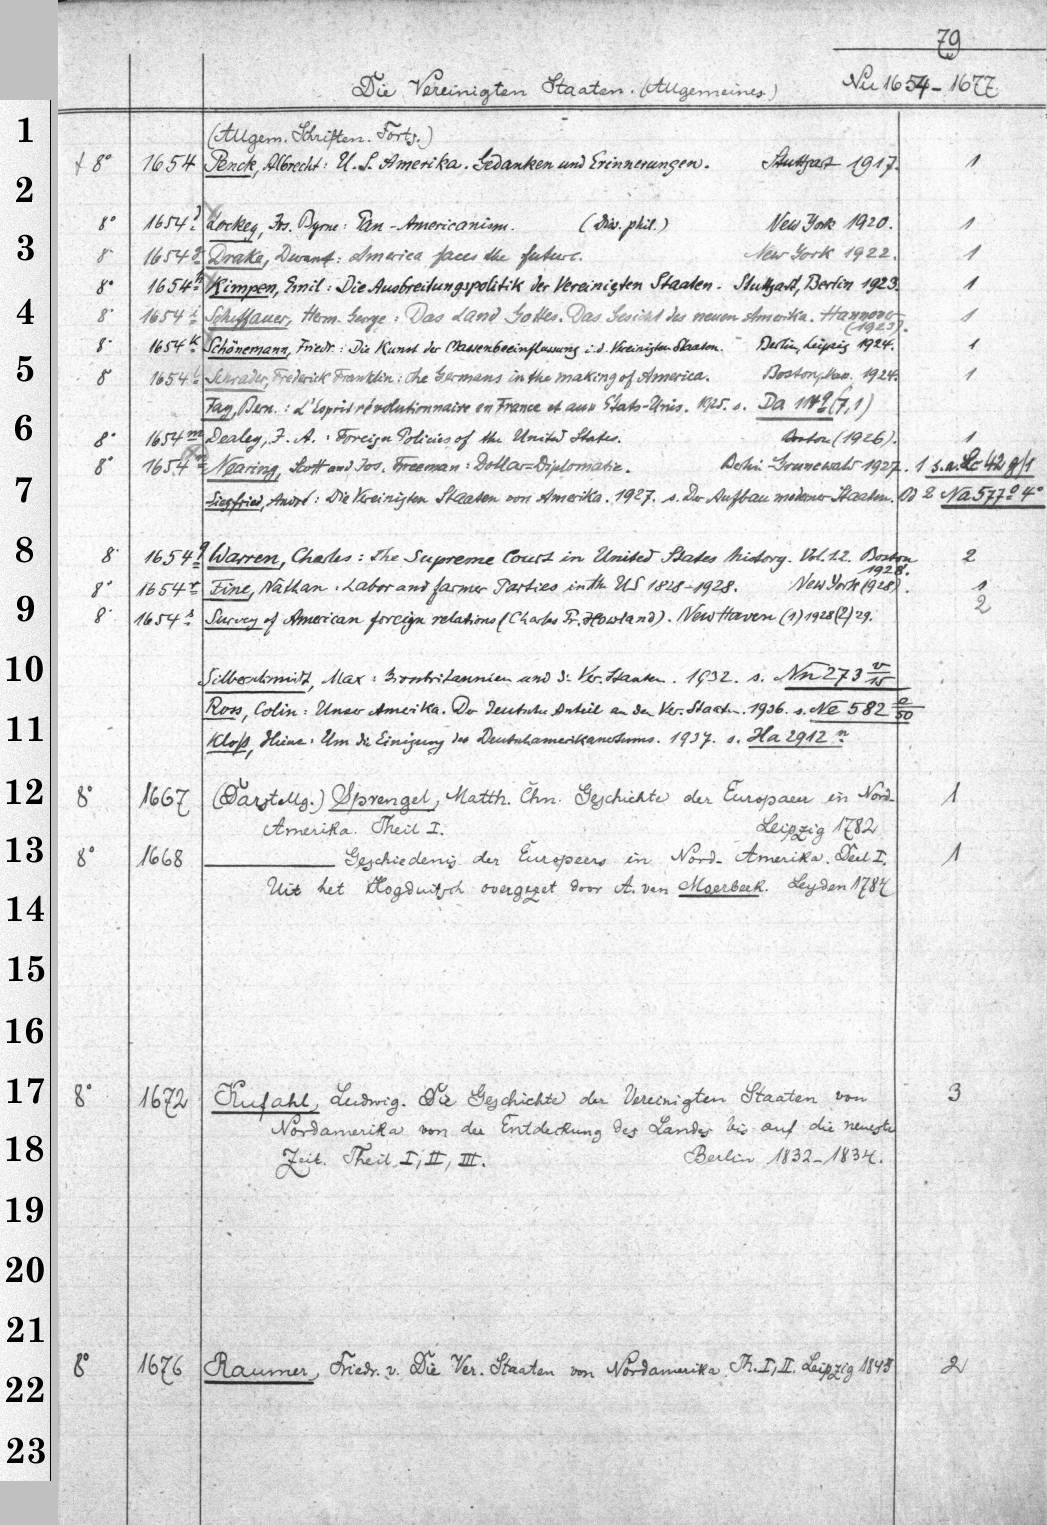 79
Die Vereinigten Staaten. (Allgemeines.) Nu 1654–1677
1
(Allgem. Schriften. Forts.)
† 8° 1654 Penck, Albrecht: U. S. Amerika. Gedanken und Erinnerungen. Stuttgart 1917. 1
2
8° 1654 Lockey, Jos. Byrne: Pan-Americanism. (Diss. phil.) New York 1920. 1
3
8° 1654 g Drake, Durant: America faces the future. New York 1922. 1
8° 1654 h Kimpen, Emil: Die Ausbreitungspolitik der Vereinigten Staaten. Stuttgart, Berlin 1923. 1
4
8° 1654 i Scheffauer, Herm. George: Das Land Gottes. Das Gesicht des neuen Amerika. Hannover 1
(1923).
8° 1654 k Schönemann, Friedr.: Die Kunst der Massenbeeinflussung i. d. Vereinigten Staaten. Berlin, Leipzig 1924. 1
5
8° 1654 l Schrader, Frederick Franklin: The Germans in the making of America. Boston, Mass. 1924. 1
Fay, Bern.: L'Esprit révolutionnaire en France et aux États-Unis. 1925. s. Da (7,1)
6
8° 1654 m Dealey, J. A.: Foreign Policies of the United States. Boston (1926). 1
8° 1654 n Nearing, Scott and Jos. Freeman: Dollar=Diplomatie. Berlin-Grunewald 1927. 1 s. a. Lc 42 g/1
7
Siegfried, André: Die Vereinigten Staaten von Amerika. 1927. s. Der Aufbau moderner Staaten. Bd 2 Na 577 g 4°
8
8° 1654 q Warren, Charles: The Supreme Court in United States history. Vol. 1.2. Boston 2
1928.
8° 1654 r Fine, Nathan: Labor and farmer Parties in the US 1828–1928. New York (1928). 1
9
8° 1654 s Survey of American foreign relations (Charles P. Howland). New Haven (1) 1928 (2) 29. 2
10
Silberschmidt, Max: Grossbritannien und d. Ver. Staaten. 1932. s. Nn 273 v/15
Ross, Colin: Unser Amerika. Der deutsche Anteil an den Ver. Staaten. 1936. s. Ne 582 e/50
11
Kloß, Heinz: Um die Einigung des Deutschamerikanertums. 1937. s. Ha 2912 n
12
8° 1667 (Darstellg.) Sprengel, Matth. Chn. Geschichte der Europaeer in Nord- 1
Amerika. Theil I. Leipzig 1782
13
8° 1668 ——— Geschiedenis der Europeers in Nord-Amerika. Deel I. 1
Uit het Hogduitsch overgezet door A. van Moerbeek. Leyden 1784
14
15
16
17
8° 1672 Kufahl, Ludwig. Die Geschichte der Vereinigten Staaten von 3
Nordamerika von der Entdeckung des Landes bis auf die neueste
18
Zeit. Theil I, II, III. Berlin 1832–1834.
19
20
21
8° 1676 Raumer, Friedr. v. Die Ver. Staaten von Nordamerika. Th. I, II. Leipzig 1845 2
22
23